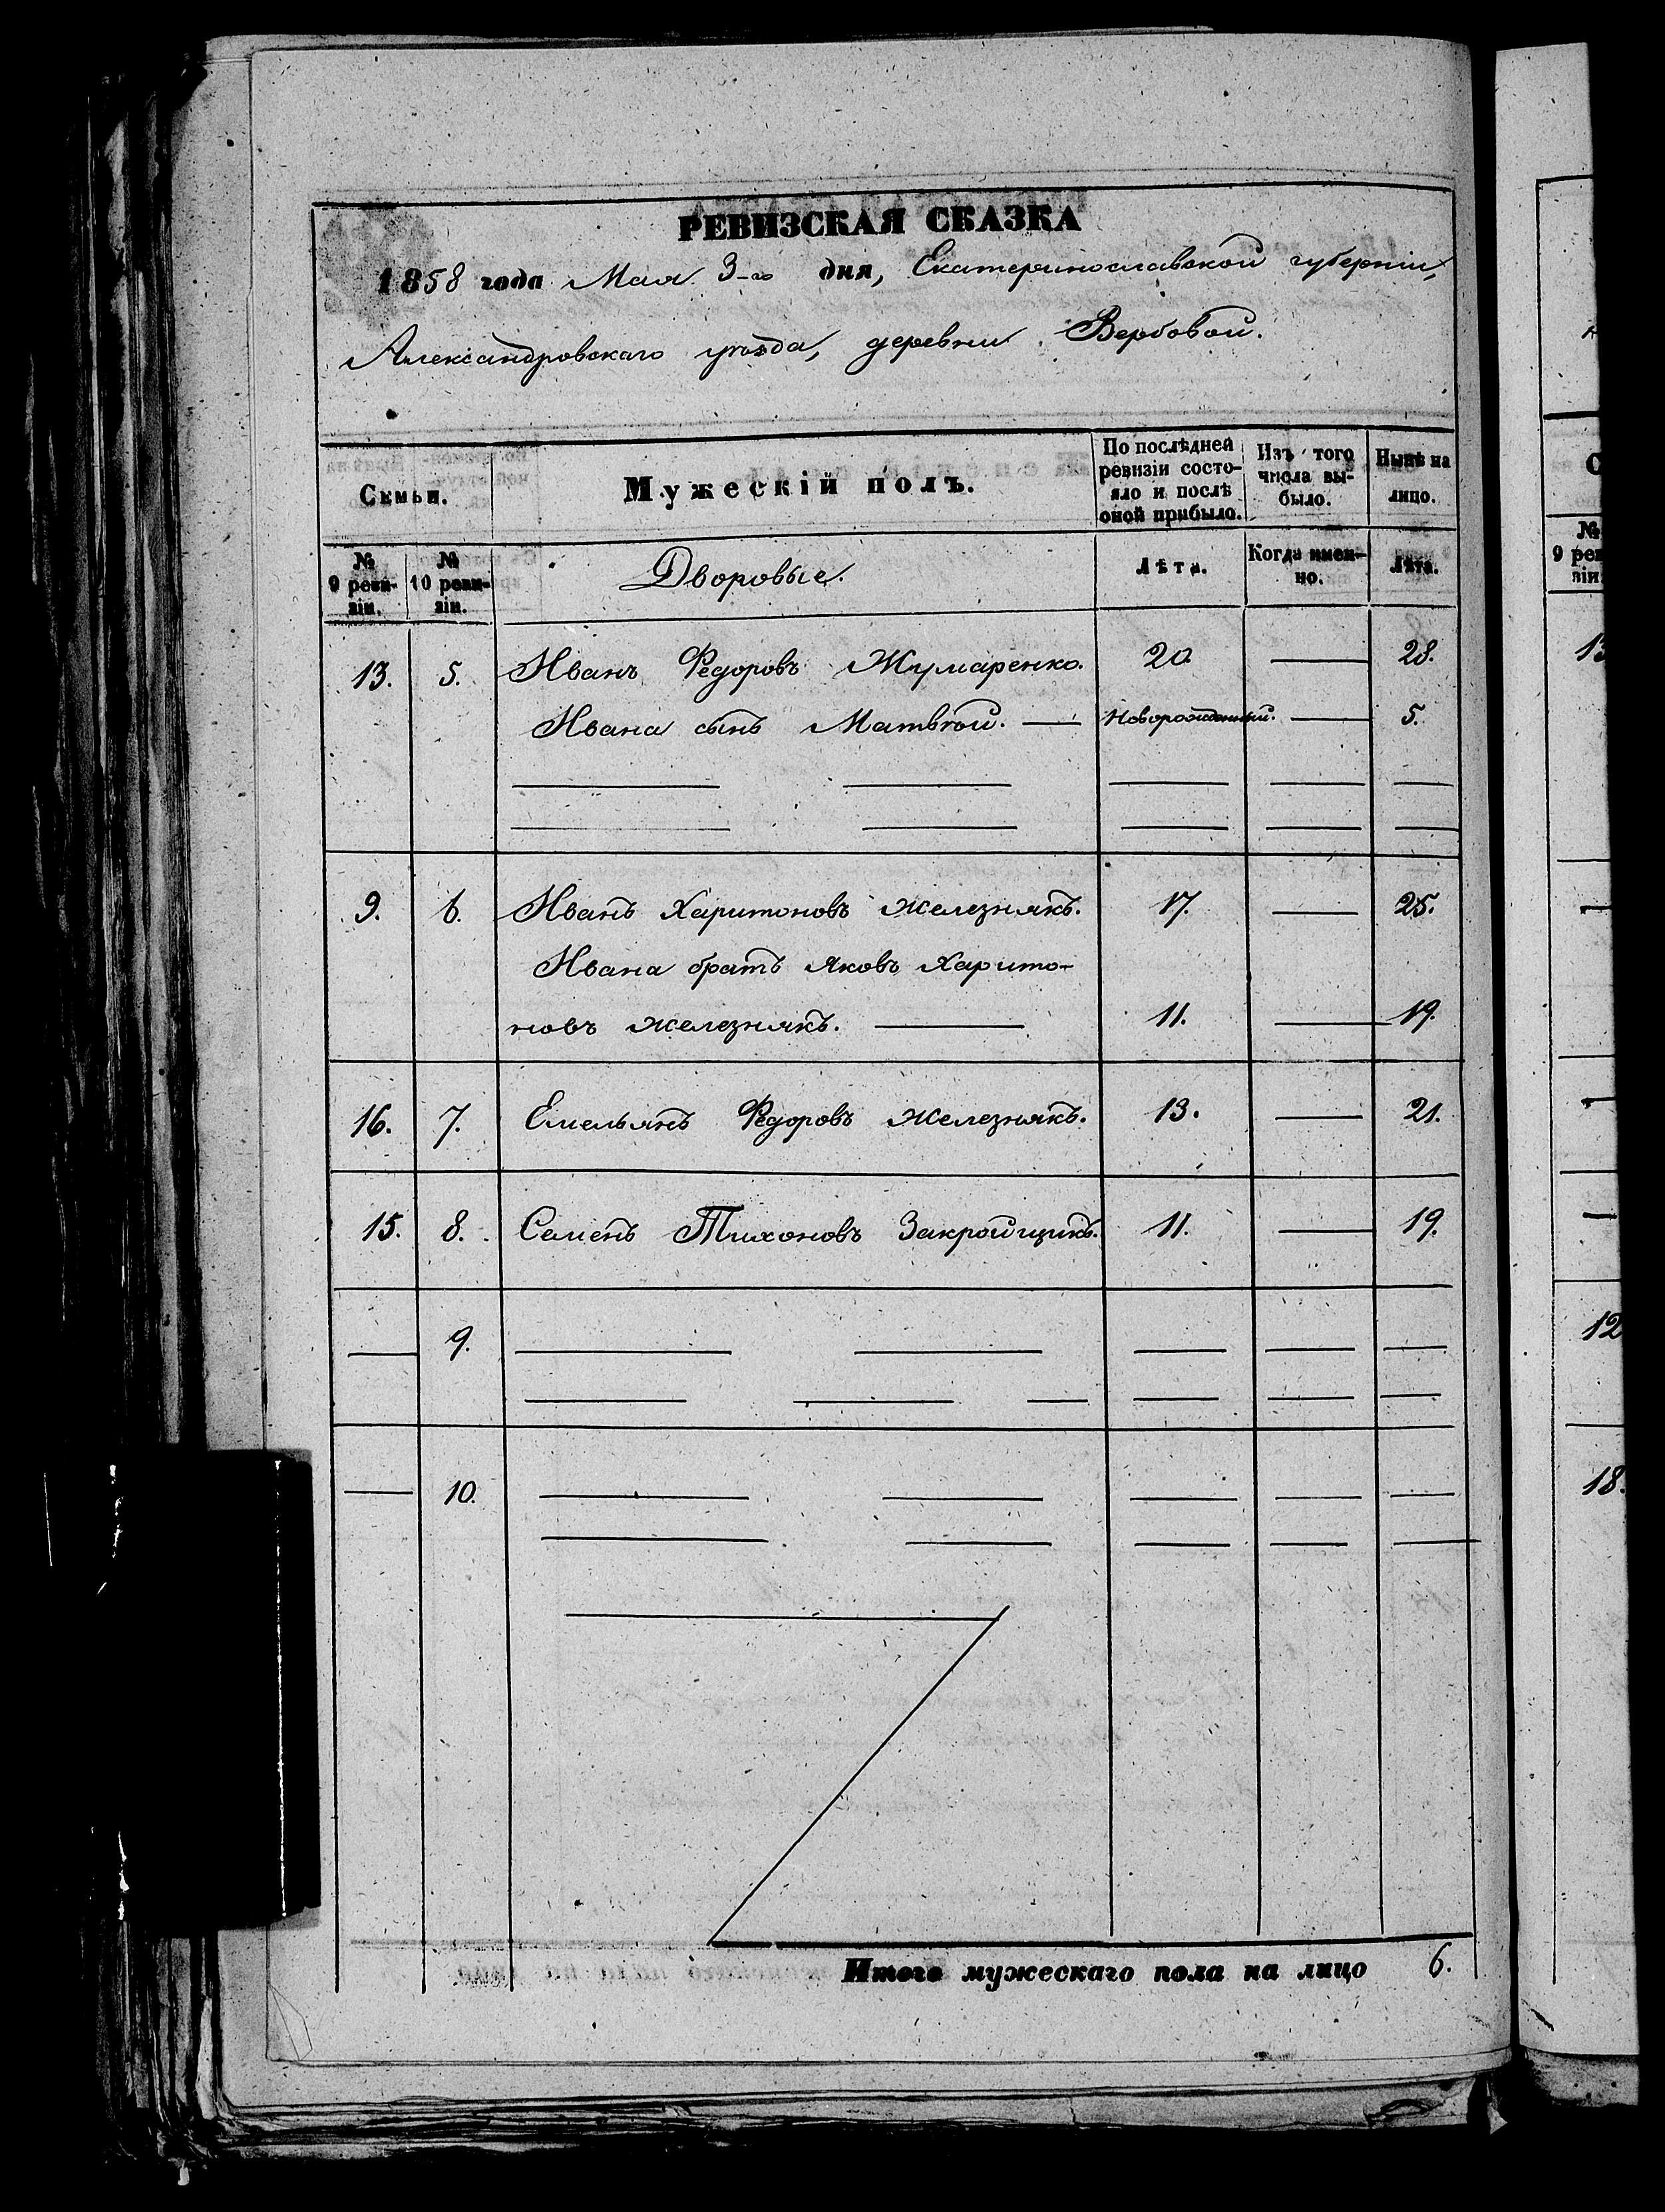 РЕВИЗСКАЯ СКАЗКА
1858 года Мая 3-го дня, Екатеринославской губерніи,
Александровскаго уѣзда, деревни Вербовой.
Семьи. Мужескій полъ. По послѣдней ревизіи состояло и послѣ оной прибыло. Изъ того числа выбыло. Нынѣ на лицо.
№ 9 ревизіи. № 10 ревизіи. Дворовые. Лѣта. Когда именно. Лѣта.
13. 5. Иванъ Ѳедоровъ Жумаренко. 20. — 28.
Ивана сынъ Матвѣй. — Новорожденный. — 5.
9. 6. Иванъ Харитоновъ Железнякъ. 17. — 25.
Ивана братъ Яковъ Харито-
новъ Железнякъ. — 11. — 19.
16. 7. Емельянъ Ѳедоровъ Железнякъ. 13. — 21.
15. 8. Семенъ Тихоновъ Закройщикъ. 11. — 19.
— 9. — — — — —
— 10. — — — — —
Итого мужескаго пола на лицо 6.
№
9 рев
зіи
13
12
18.